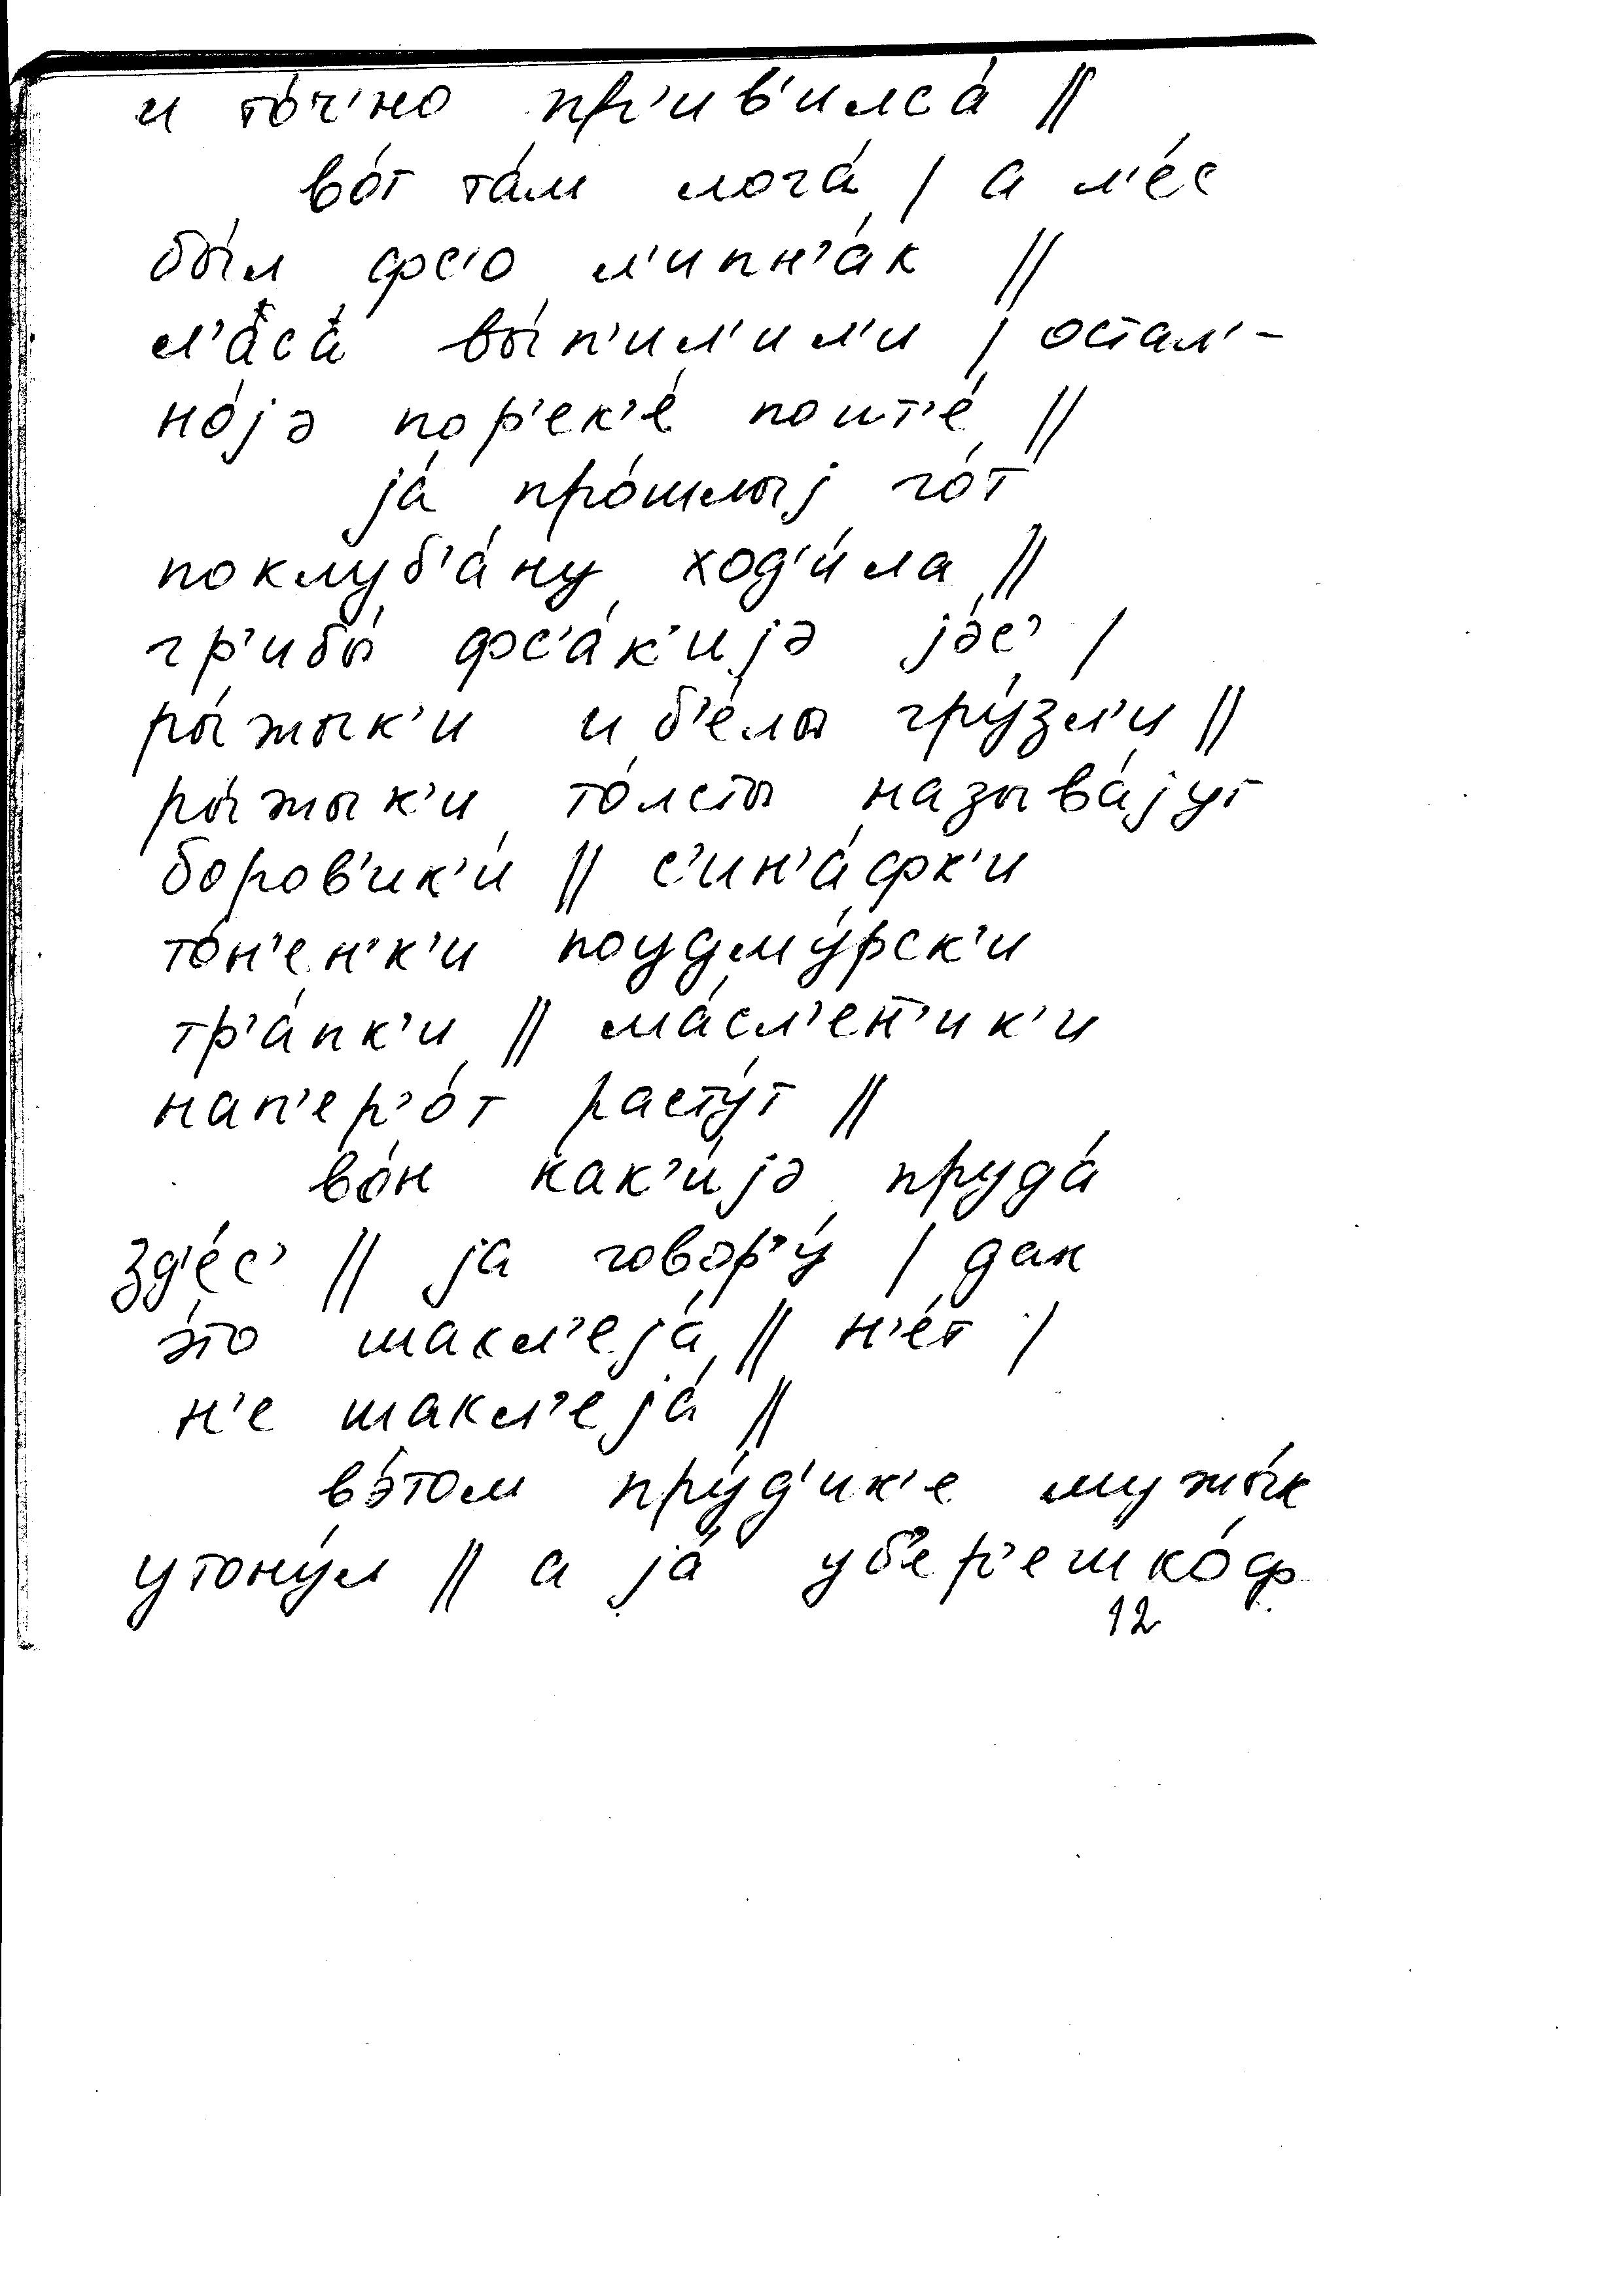 и то́ч'но пр'ив'илса́ ||
во́т та́м лога́ | а л'е́с
бы́л фс'о л'ипн'а́к ||
л'аса́ вы́п'ил'ил'и | остал'-
но́јə пор'ек'е́ пошт'е́ ||
ја́ про́шлыј го́т
поклуб'а́ну ход'и́ла ||
гр'ибы́ фс'а́к'ијə је́с' |
ры́жык'и и б'е́лы гру́зл'и ||
ры́жык'и то́лсты называ́јут
боров'ик'и́ || с'ин'а́фк'и
то́н'ен'к'и поудму́рск'и
тр'а́пк'и || ма́сл'ен'ик'и
нап'ер'о́т расту́т ||
во́н как'и́јə пруда́
зд'е́с' || ја говор'у́ | дак
э́то шакл'еја́ || н'е́т |
н'е шакл'еја́ ||
вэ́том пру́д'ик'е мужы́к
утону́л || а ја́ уб'ер'ешко́ф
12